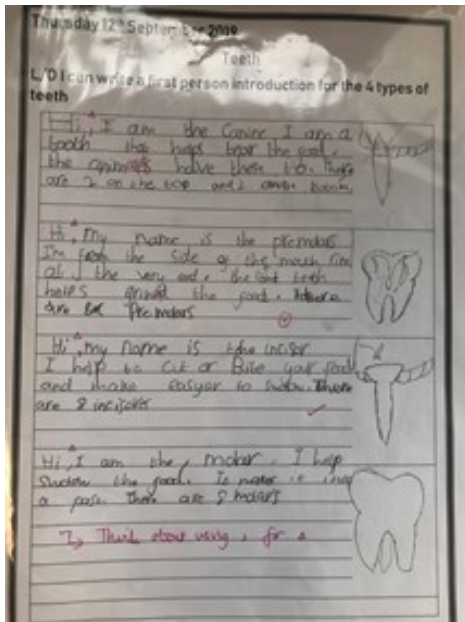 Thursday 12th September 2019
Teeth
L/O I can write a first person introduction for the 4 types of
teeth
Hi, I am the Canine I am a
tooth that helps tear the food.
the have these to. There
are 2 on the top and 2 on the
Hi, my name is the premolars
I'm from the side of the mouth
at the very end. the teeth
helps grind the food. there
are 8 Premolars
Hi, my name is the incisor
I help to Cut or Bite your food
and make easyer to swolow. There
are 8 incisors
Hi, I am the molar. I help
the food. to make it into
a paste. There are 8 molars
Think about using , for a